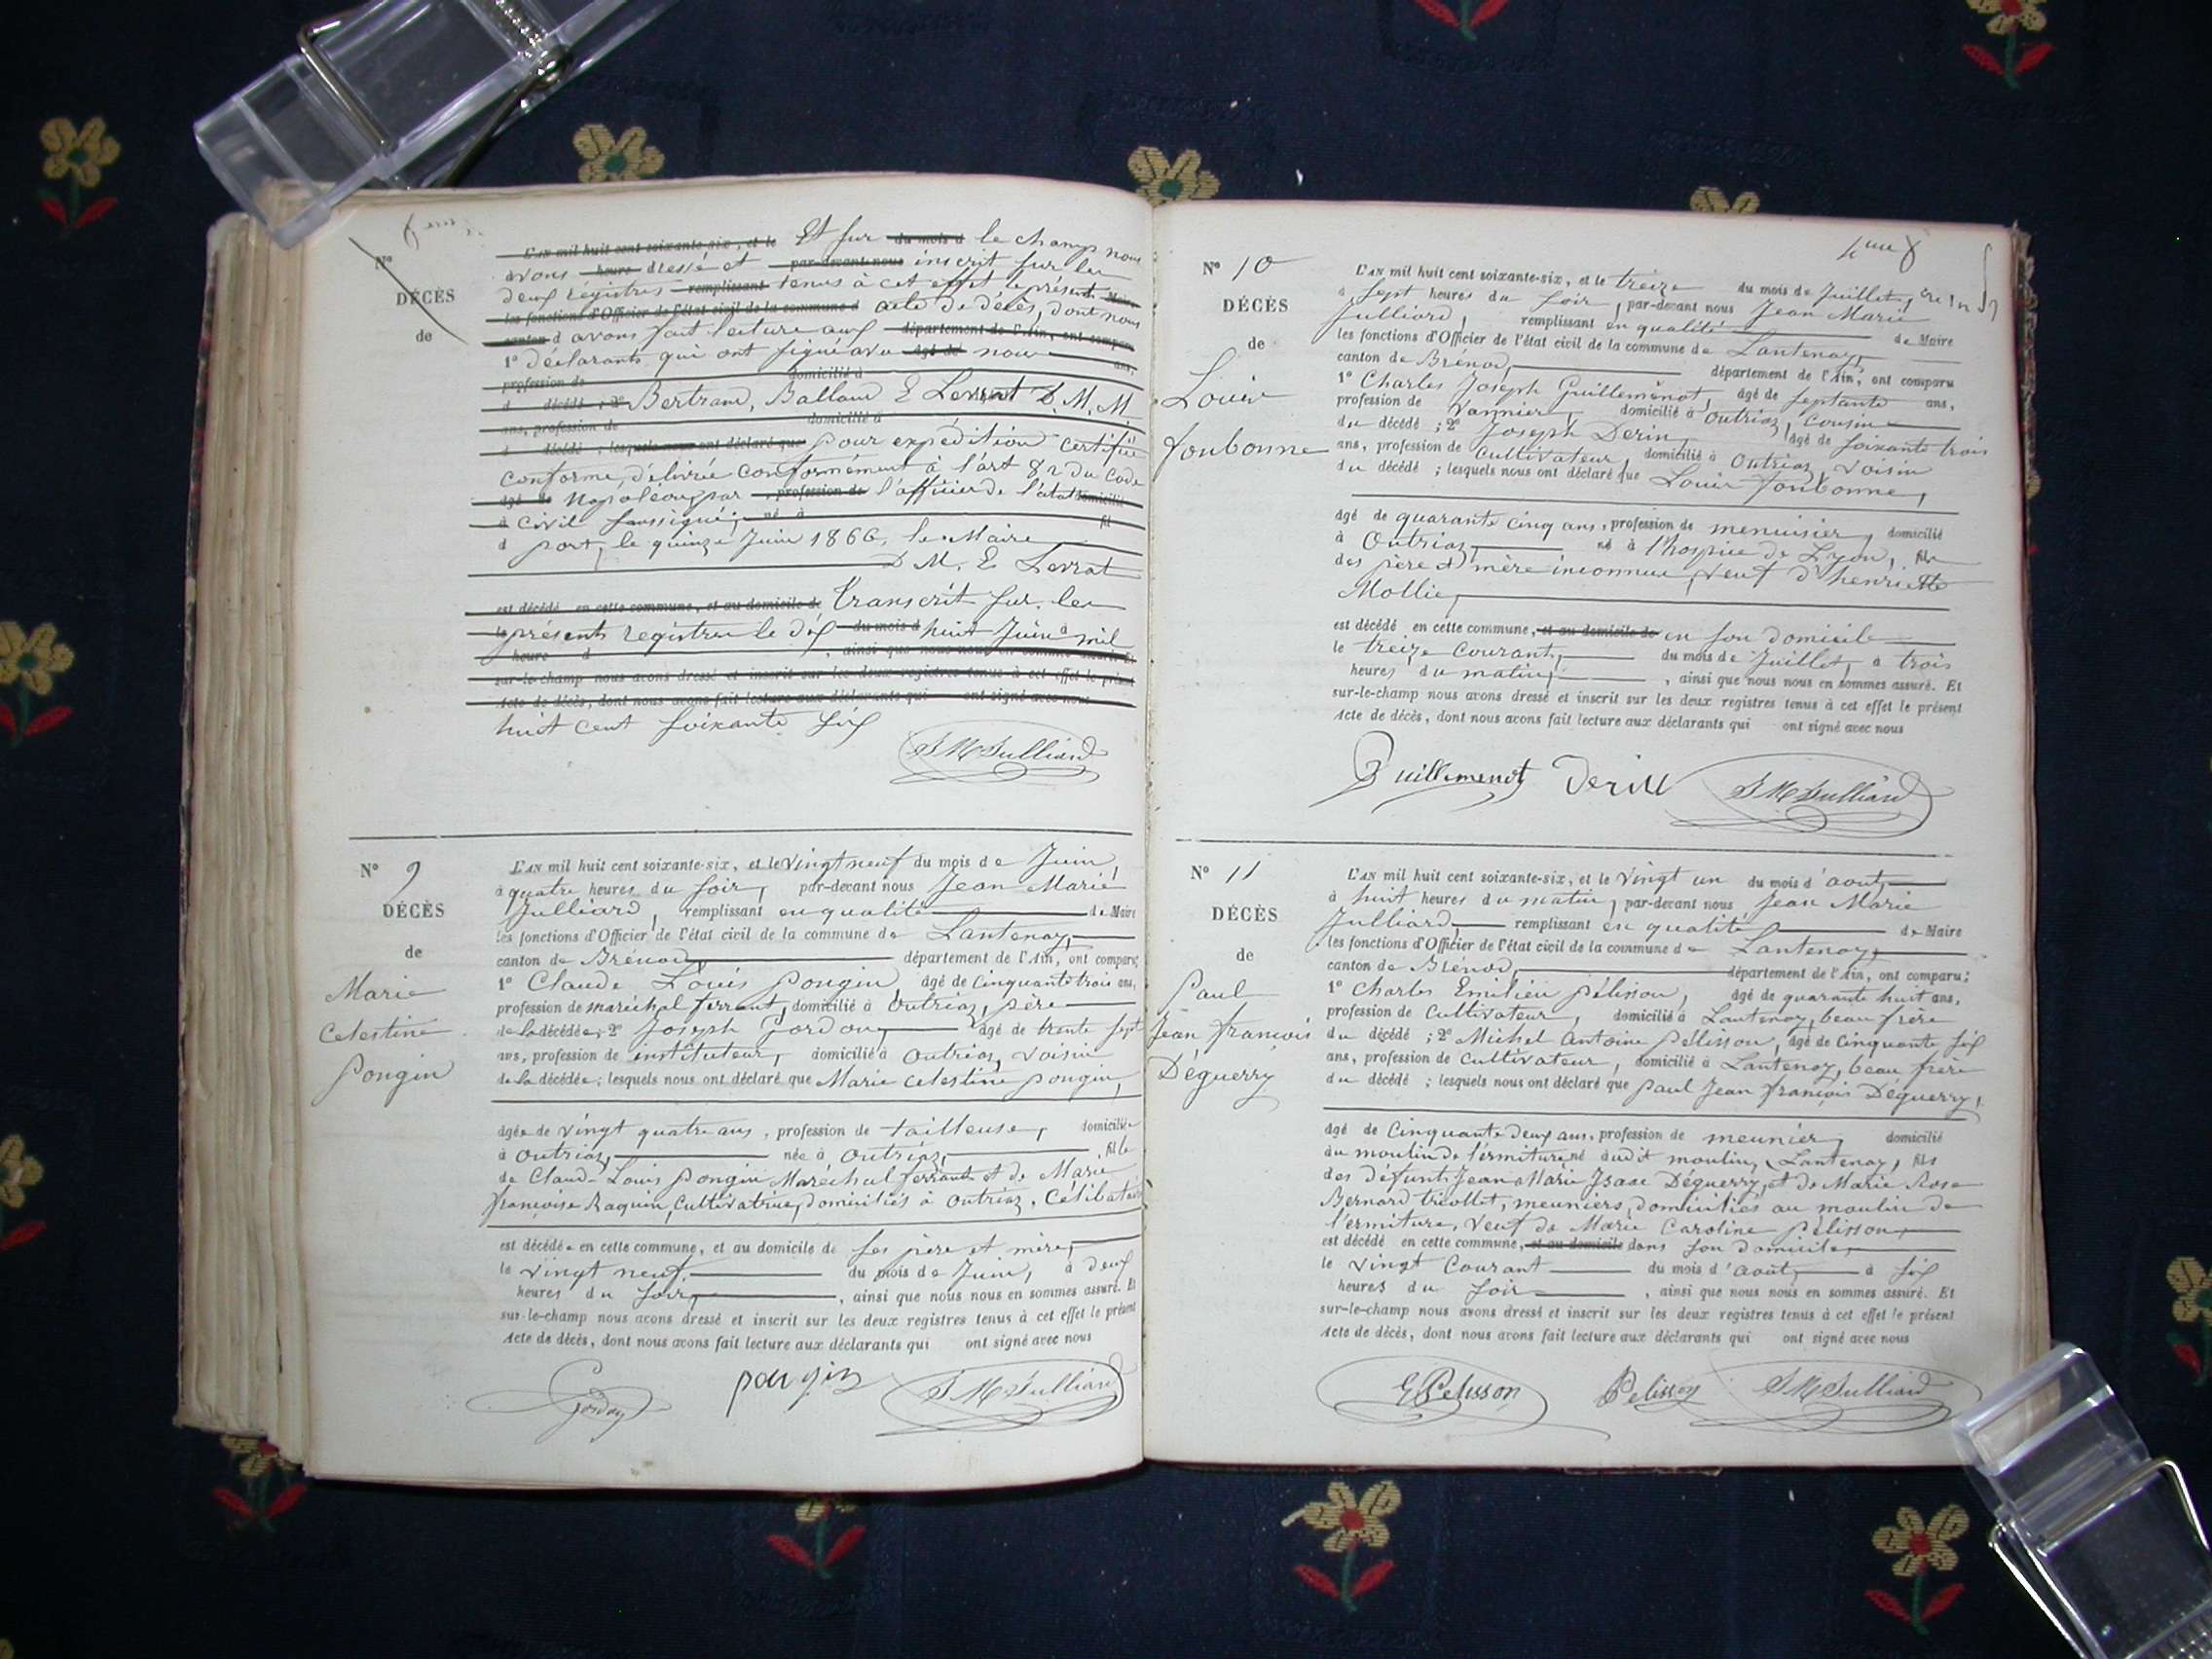 N°
DÉCÈS
de
L'AN mil huit cent soixante-six, et le Et sur du mois d le champ nous
avons heure dressé et par-devant nous inscrit sur les
deux régistres remplissant tenus à cet effet le présent Maire
les fonctions d'Officier de l'état civil de la commune d acte de décès, dont nous
canton d avons fait lecture aux département de l'Ain, ont comparu
1° déclarants qui ont signé avec âgé de nous ans,
profession de domicilié à
d décédé ; 2° Bertrand, Balland E Levrat D. M. M.
ans, profession de domicilié à
d décédé ; lesquels nous ont déclaré que pour expédition certifiée
conforme, délivrée conformément à l'art 82 du Code
âgé de Napoléon, par , profession de l'officier de l'état domicilié
à civil soussigné, né à fil
d port, le quinze Juin 1866, le Maire
D M. E Levrat
est décédé en cette commune, et au domicile de transcrit sur les
le présents registres le dix du mois d huit Juin à mil
heure d , ainsi que nous nous en sommes assuré. Et
sur-le-champ nous avons dressé et inscrit sur les deux registres tenus à cet effet le présent
Acte de décès, dont nous avons fait lecture aux déclarants qui ont signé avec nous
huit cent soixante six
J M Julliard
N° 9
DÉCÈS
de
Marie
Celestine
Pongin
L'AN mil huit cent soixante-six, et le vingt neuf du mois de Juin,
à quatre heures du soir, par-devant nous Jean Marie
Julliard, remplissant en qualité de Maire
les fonctions d'Officier de l'état civil de la commune de Lantenay,
canton de Brénod, département de l'Ain, ont comparu;
1° Claude Louis Pongin, âgé de Cinquante trois ans,
profession de maréchal ferrant, domicilié à Outriaz, père
de la décédée; 2° Joseph Gordon, âgé de trente sept
ans, profession de instituteur, domicilié à Outriaz, voisin
de la décédée; lesquels nous ont déclaré que Marie Celestine Pongin,
âgée de vingt quatre ans, profession de tailleuse, domiciliée
à Outriaz, née à Outriaz, fille
de Claud-Louis Pongin Maréchal ferrant et de Marie
françoise Raquin, Cultivatrice, domiciliés à Outriaz. Célibataire
est décédée en cette commune, et au domicile de ses père et mère,
le vingt neuf, du mois de Juin, à deux
heures du soir, , ainsi que nous nous en sommes assuré. Et
sur-le-champ nous avons dressé et inscrit sur les deux registres tenus à cet effet le présent
Acte de décès, dont nous avons fait lecture aux déclarants qui ont signé avec nous
pongin J M Julliard
N° 10
DÉCÈS
de
Louis
fonbonne
L'AN mil huit cent soixante-six, et le treize du mois de Juillet,
à sept heures du soir, par-devant nous Jean Marie
Julliard, remplissant en qualité de Maire
les fonctions d'Officier de l'état civil de la commune de Lantenay,
canton de Brénod, département de l'Ain, ont comparu
1° Charles Joseph Guillemenot, âgé de septante ans,
profession de Vannier, domicilié à Outriaz, cousin
du décédé ; 2° Joseph Derin, âgé de soixante trois
ans, profession de Cultivateur, domicilié à Outriaz, voisin
du décédé ; lesquels nous ont déclaré que Louis fonbonne,
âgé de quarante cinq ans, profession de menuisier, domicilié
à Outriaz, né à l'hospice de Lyon, fils
des père et mère inconnus, veuf d'henriette
Mollie,
est décédé en cette commune, et au domicile de en son domicile
le treize courant, du mois de Juillet, à trois
heures du matin, , ainsi que nous nous en sommes assuré. Et
sur-le-champ nous avons dressé et inscrit sur les deux registres tenus à cet effet le présent
Acte de décès, dont nous avons fait lecture aux déclarants qui ont signé avec nous
Guillemenot Derin J M Julliard
N° 11
DÉCÈS
de
Paul
Jean françois
Déguerry
L'AN mil huit cent soixante-six, et le vingt un du mois d'aout,
à huit heures du matin, par-devant nous Jean Marie
Julliard, remplissant en qualité de Maire
les fonctions d'Officier de l'état civil de la commune de Lantenay,
canton de Brénod, département de l'Ain, ont comparu;
1° Charles Emilien Pélisson, âgé de quarante huit ans,
profession de Cultivateur, domicilié à Lantenay, beau frère
du décédé ; 2° Michel Antoine Pélisson, âgé de Cinquante six
ans, profession de Cultivateur, domicilié à Lantenay, beau frère
du décédé ; lesquels nous ont déclaré que Paul Jean françois Déguerry,
âgé de Cinquante deux ans, profession de meunier, domicilié
au moulin de l'ermiture, né audit moulin, Lantenay, fils
des défunts Jean Marie Isaac Déguerry, et de Marie Rose
Bernard tricollet, meuniers, domiciliés au moulin de
l'ermiture, Veuf de Marie Caroline Pélisson,
est décédé en cette commune, et au domicile dans son domicile,
le vingt Courant du mois d'aout, à six
heures du soir , ainsi que nous nous en sommes assuré. Et
sur-le-champ nous avons dressé et inscrit sur les deux registres tenus à cet effet le présent
Acte de décès, dont nous avons fait lecture aux déclarants qui ont signé avec nous
E Pelisson Pelisson J M Julliard